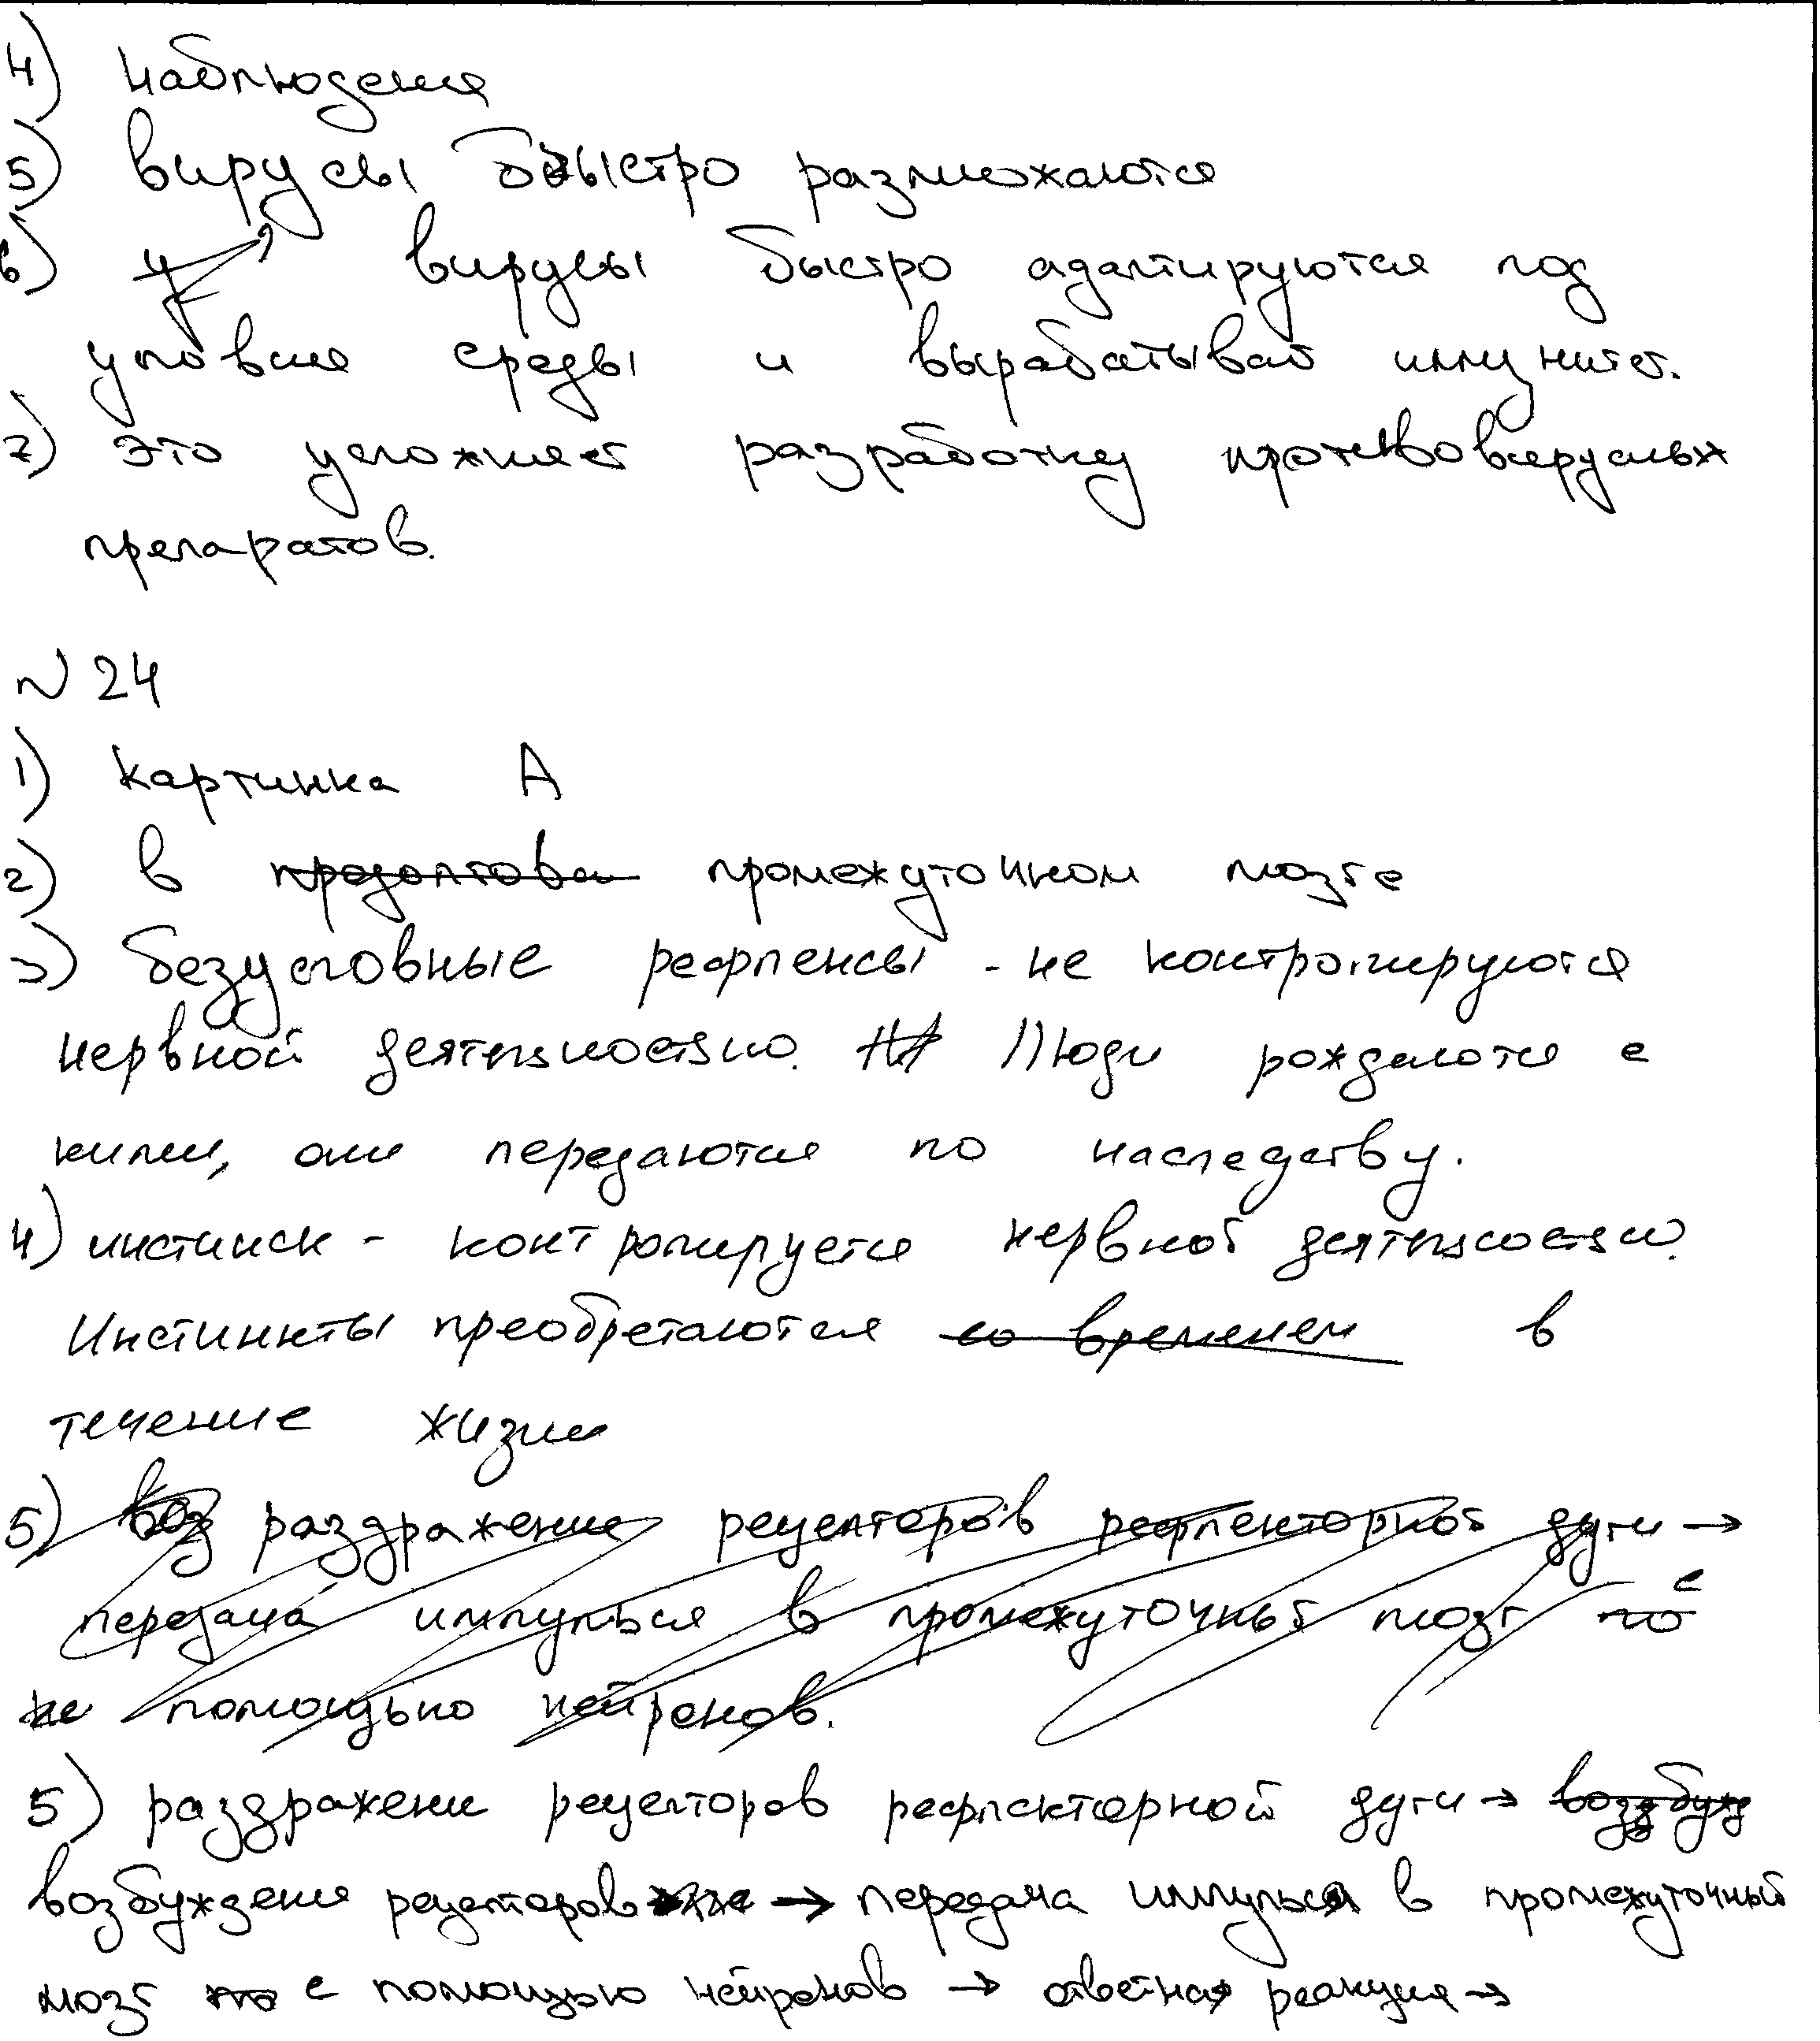 4) наблюдения
5) вирусы быстро размножаются
6) вирусы быстро адаптируются под
условия среды и вырабатывают иммунитет.
7) это усложняет разработку противовирусных
препаратов.
№ 24
1) картинка А
2) в продолгова промежуточном мозге
3) безусловные рефлексы - не контролируются
нервной деятельностью. Люди рождаются с
ними, они передаются по наследству.
4) инстинск - контролируется нервной деятельностью.
Инстинкты преобретаются со временем в
течение жизни
5) воз раздражение рецепторов рефлекторной дуги →
передача импульса в промежуточный мозг по с
не помощью нейронов.
5) раздражение рецепторов рефлекторной дуги → возбужд
возбуждение рецепторов → передача импульса в промежуточный
мозг по с помощью нейронов → ответная реакция →